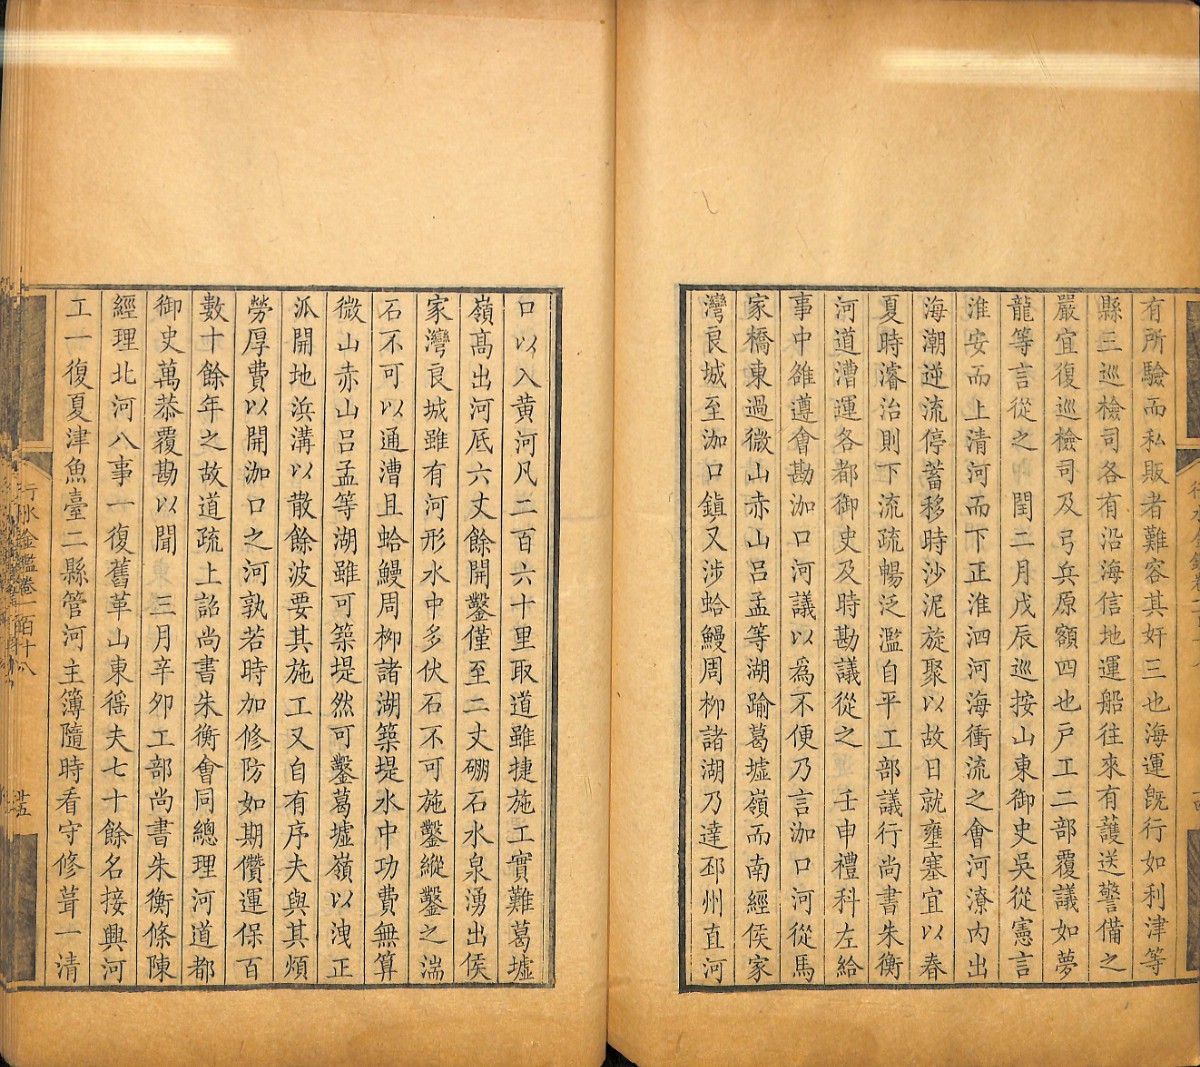 有所驗而私販者難容其奸三也海運旣行如利津等
縣三巡檢司各有沿海信地運船往來有護送警備之
嚴宜復巡檢司及弓兵原額四也戸工二部覆議如夢
龍等言從之 閏二月戊辰巡按山東御史吳從憲言
淮安而上清河而下正淮泗河海衝流之會河潦內出
海潮逆流停蓄移時沙泥旋聚以故日就壅塞宜以春
夏時濬治則下流疏暢泛濫自平工部議行尚書朱衡
河道漕運各都御史及時勘議從之 壬申禮科左給
事中雒遵會勘泇口河議以爲不便乃言泇口河從馬
家橋東過微山赤山呂孟等湖踰葛墟嶺而南經侯家
灣良城至泇口鎮又涉蛤鰻周柳諸湖乃達邳州直河
口以入黃河凡二百六十里取道雖捷施工實難葛墟
嶺高出河底六丈餘開鑿僅至二丈硼石水泉湧出侯
家灣良城雖有河形水中多伏石不可施鑿縱鑿之湍
石不可以通漕且蛤鰻周柳諸湖築堤水中功費無算
微山赤山呂孟等湖雖可築堤然可鑿葛墟嶺以洩正
派開地浜溝以散餘波要其施工又自有序夫與其煩
勞厚費以開泇口之河孰若時加修防如期儹運保百
數十餘年之故道疏上詔尚書朱衡會同總理河道都
御史萬恭覆勘以聞 三月辛夘工部尚書朱衡條陳
經理北河八事一復舊革山東徭夫七十餘名接興河
工一復夏津魚臺二縣管河主簿隨時看守修葺一清
行水金鑑卷一百十八